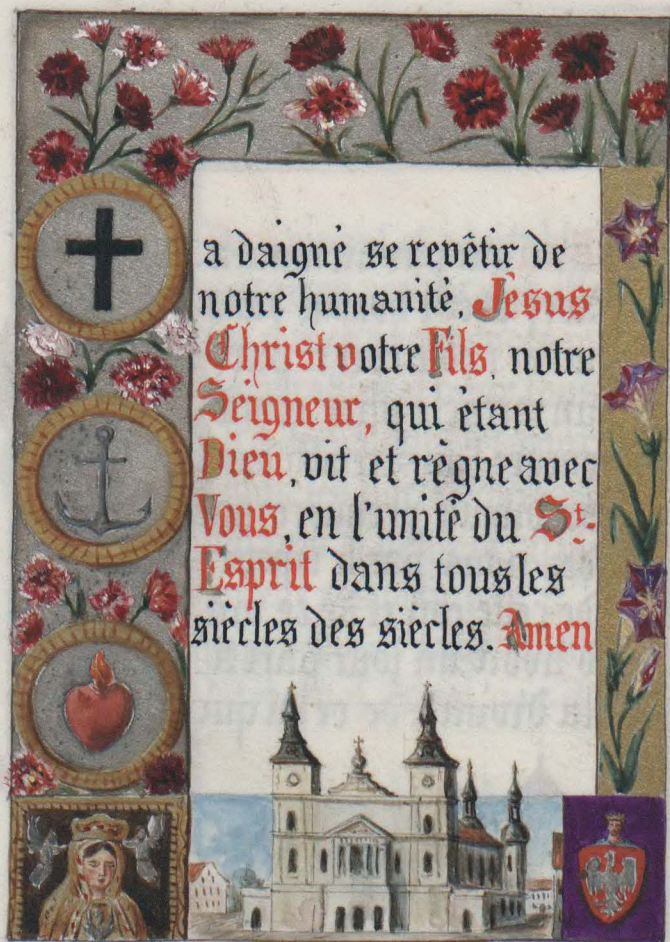 a daigné se revêtir de
notre humanité, Jésus
Christ votre Fils, notre
Seigneur, qui étant
Dieu, vit et règne avec
Vous, en l'unité du St.
Esprit dans tous les
siècles des siècles. Amen